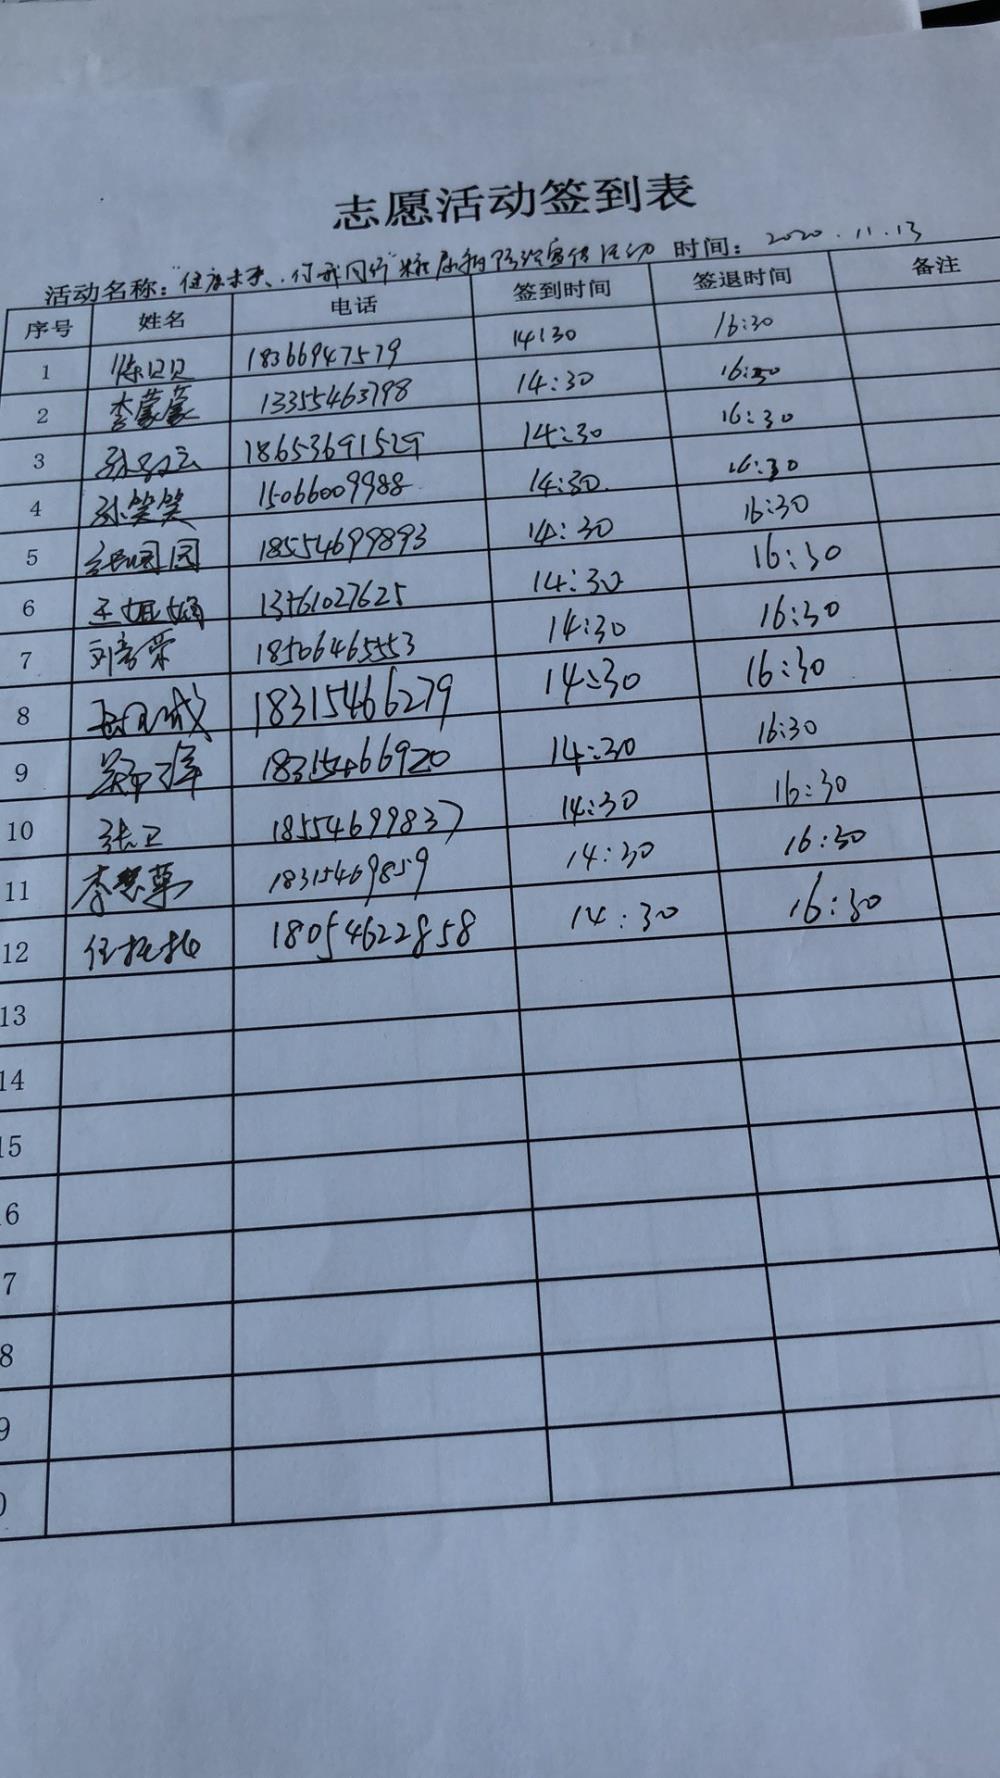 志愿活动签到表
活动名称："健康未来、你我同行"糖尿病防治宣传活动 时间：2020.11.13
序号 姓名 电话 签到时间 签退时间 备注
1 陈贝贝 18366947579 14:30 16:30
2 李蒙蒙 13355463798 14:30 16:30
3 孙 18653691529 14:30 16:30
4 孙笑笑 15066009988 14:30 16:30
5 张园园 18554699893 14:30 16:30
6 王 13561027625 14:30 16:30
7 刘 荣 18506465553 14:30 16:30
8 18315466279 14:30 16:30
9 18315466920 14:30 16:30
10 张卫 18554699837 14:30 16:30
11 李慧 18315469859 14:30 16:30
12 任 18054622858 14:30 16:30
13
14
15
16
7
8
9
0